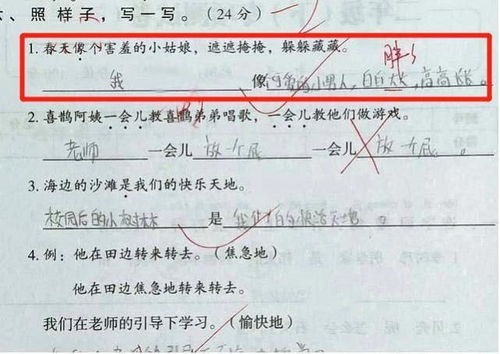 六、照样子,写一写。(24分)
1. 春天像个害羞的小姑娘,遮遮掩掩,躲躲藏藏。
胖
我 像 可爱的小男人,白白 ,高高
2. 喜鹊阿姨一会儿教喜鹊弟弟唱歌,一会儿教他们做游戏。
老师 一会儿 放一个屁 一会儿 放一个屁。
3. 海边的沙滩是我们的快乐天地。
校园后的小树林 是 我们的快活天地。
4. 例:他在田边转来转去。(焦急地)
他在田边焦急地转来转去。
我们在老师的引导下学习。(愉快地)